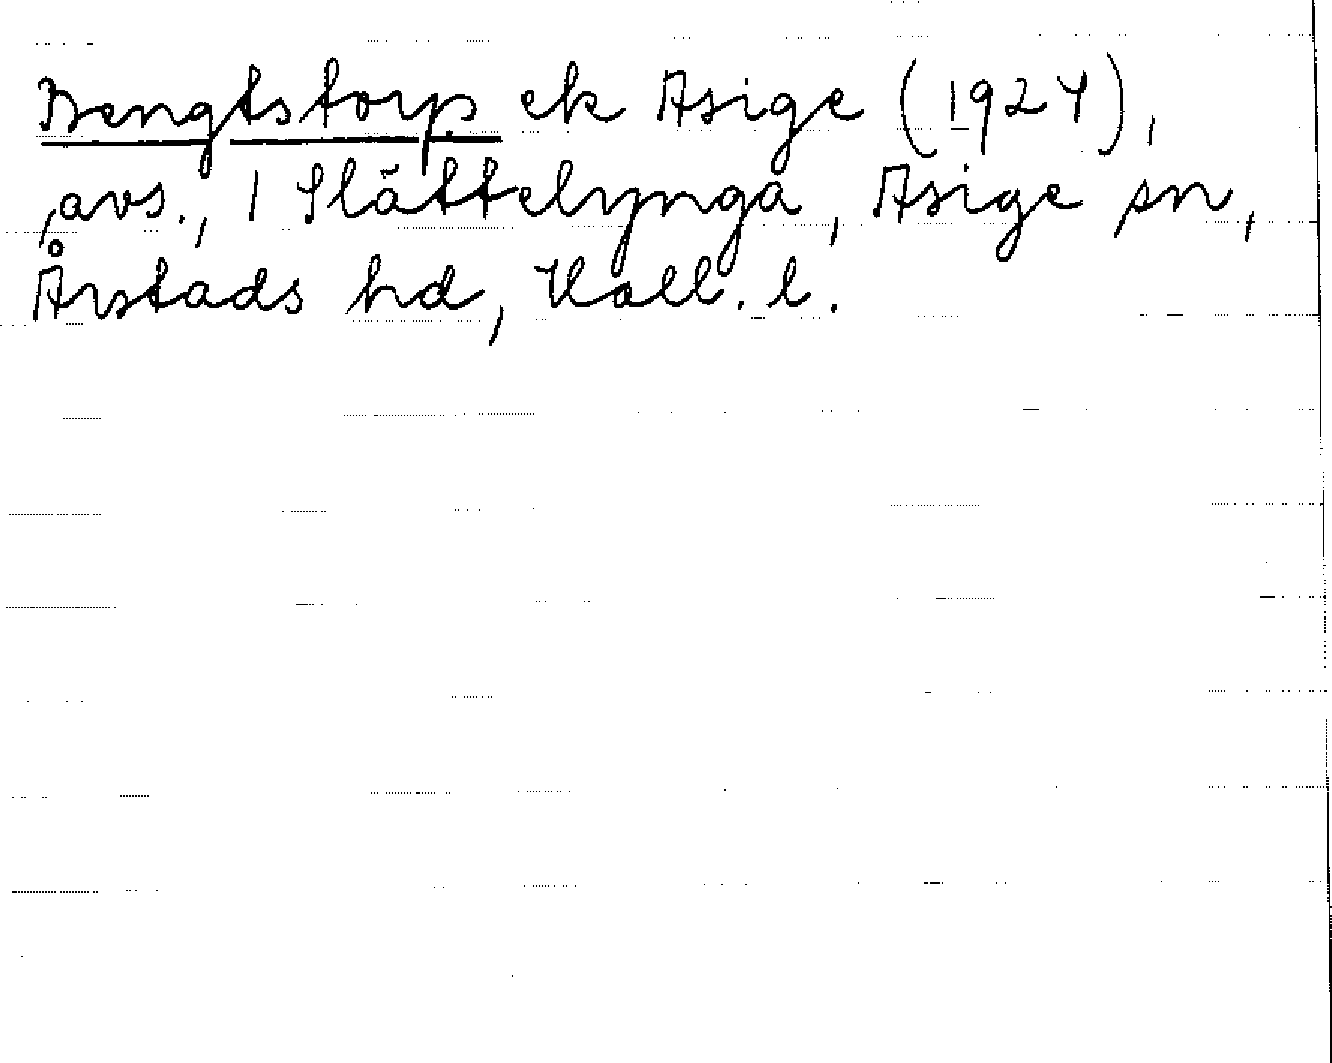 Bengtstorp ek Asige (1924),
avs., 1 Slättelynga, Asige sn,
Årstads hd, Hall. l.